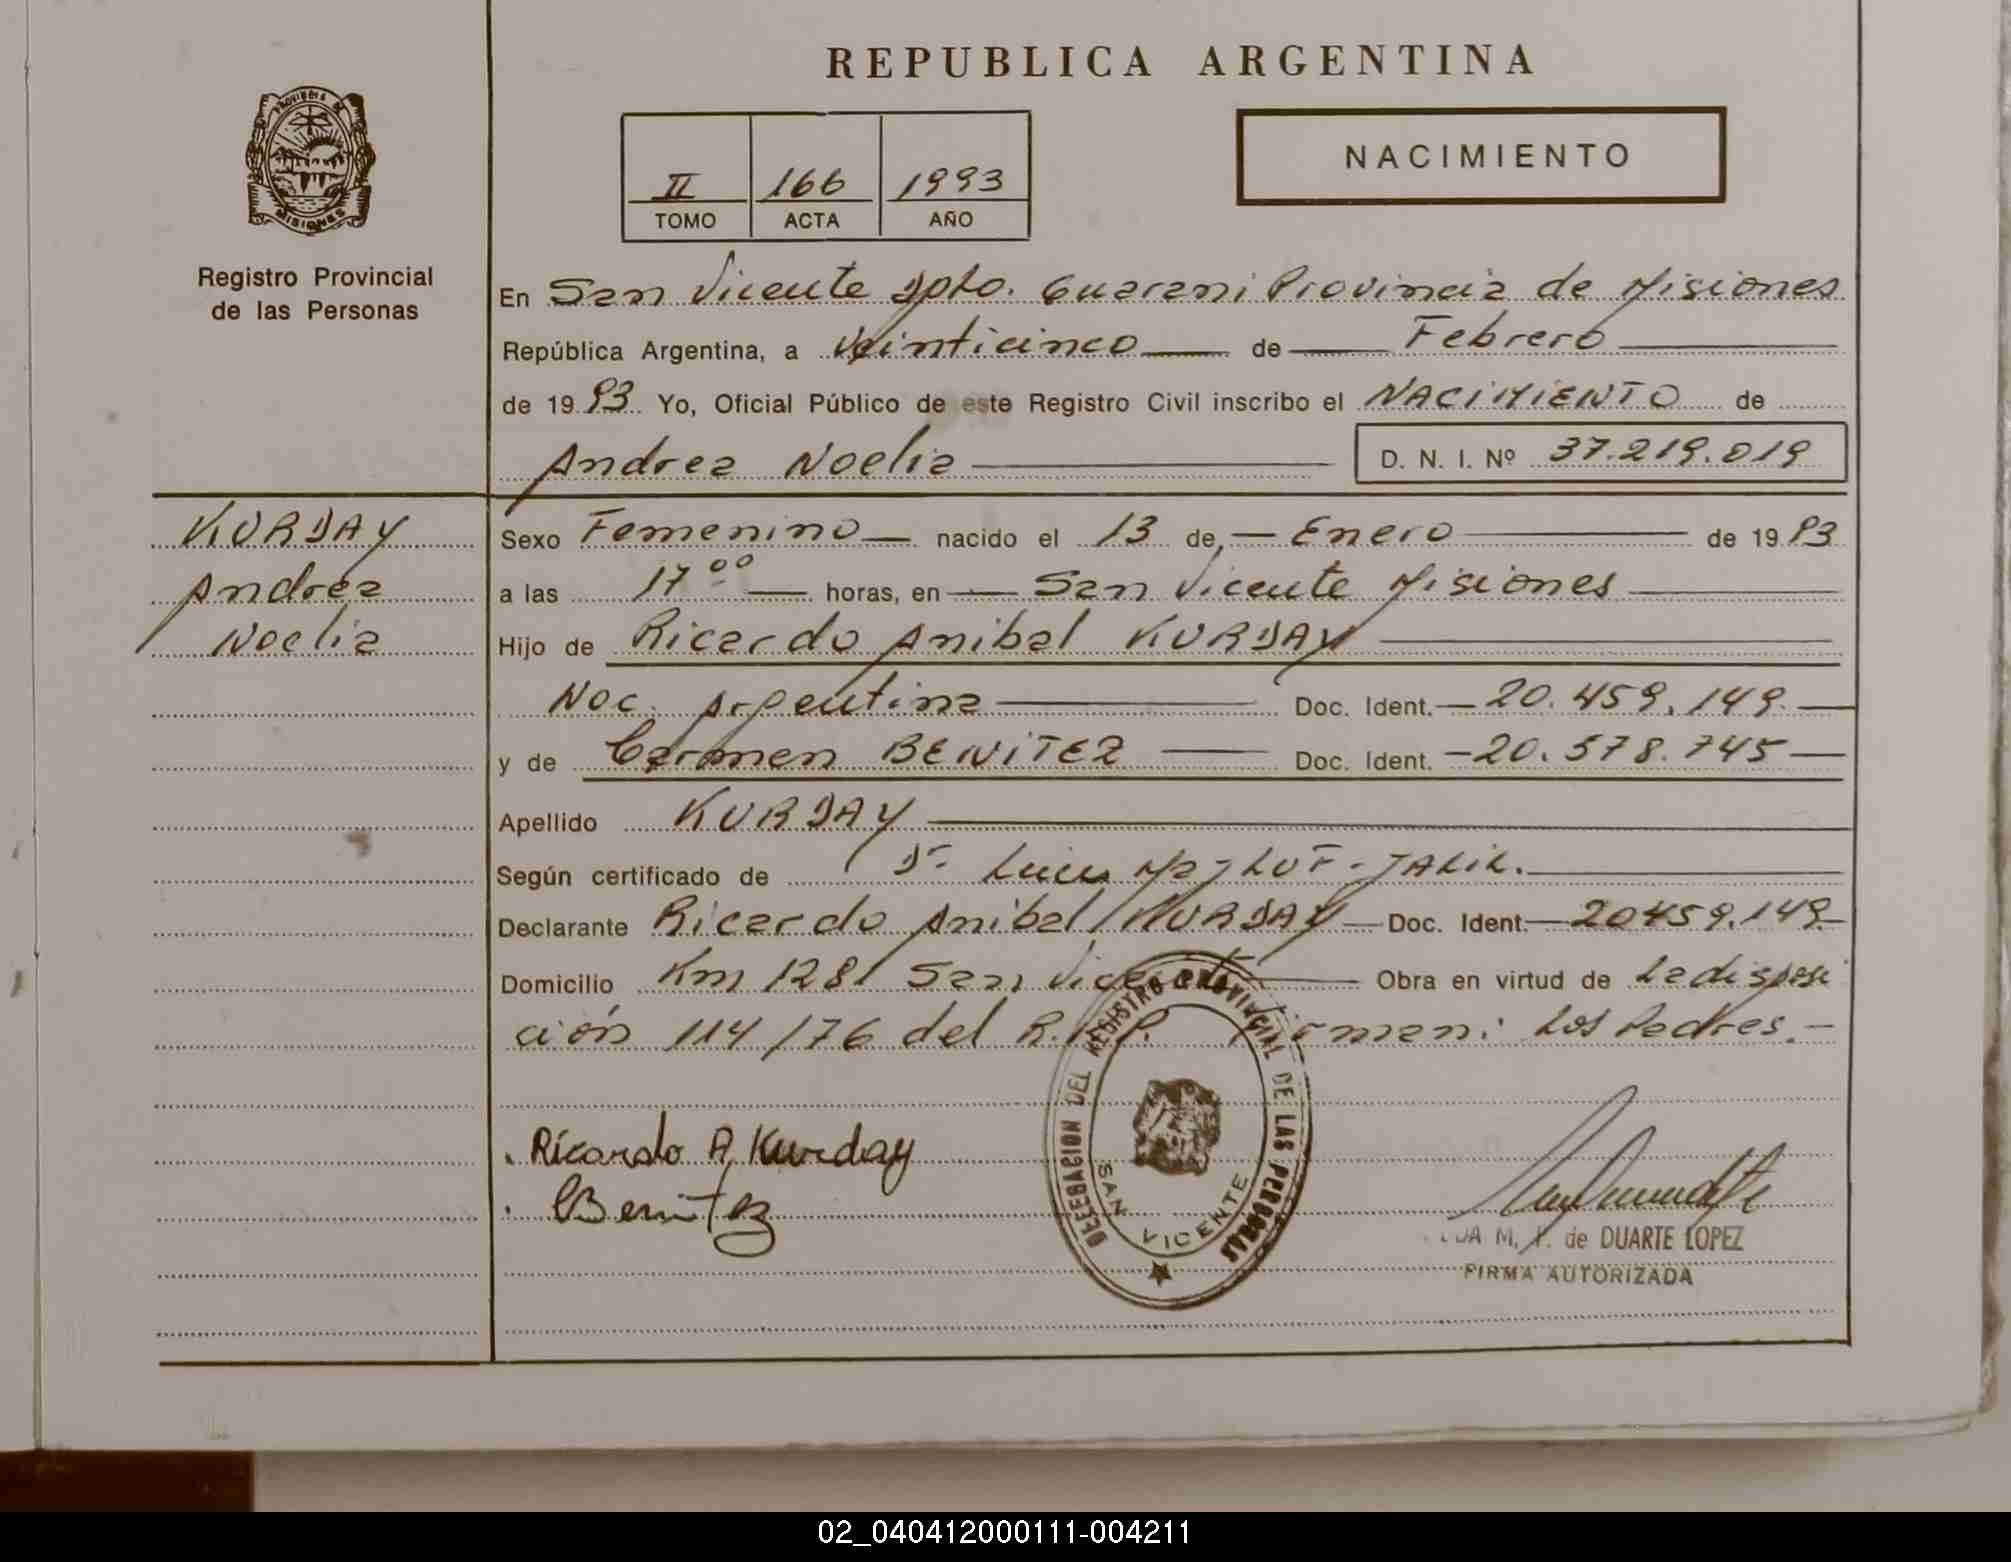 REPUBLICA ARGENTINA
PROVINCIA DE
MISIONES
Registro Provincial
de las Personas
II 166 1993
TOMO ACTA AÑO
NACIMIENTO
En San Vicente Dpto. Guarani Provincia de Misiones
República Argentina, a Veinticinco de Febrero
de 1993 Yo, Oficial Público de este Registro Civil inscribo el NACIMIENTO de
Andrea Noelia D. N. I. Nº 37.219.019
KURDAY
Andrea
Noelia
Sexo Femenino nacido el 13 de Enero de 1993
a las 17 00 horas, en San Vicente Misiones
Hijo de Ricardo Anibal KURDAY
Nac. Argentina Doc. Ident. 20.459.149.
y de Carmen BENITEZ Doc. Ident. 20.578.745
Apellido KURDAY
Según certificado de Dr. Luis
Declarante Ricardo Anibal KURDAY Doc. Ident. 20459.149.
Domicilio Km 1281 San Vicente Obra en virtud de La disposi
ción 114/76 del R.P.P. Firman: Los Padres.-
Ricardo A. Kurday
CBenitez
DELEGACION DEL REGISTRO PROVINCIAL DE LAS PERSONAS
SAN VICENTE
de DUARTE LOPEZ
FIRMA AUTORIZADA
02_040412000111-004211